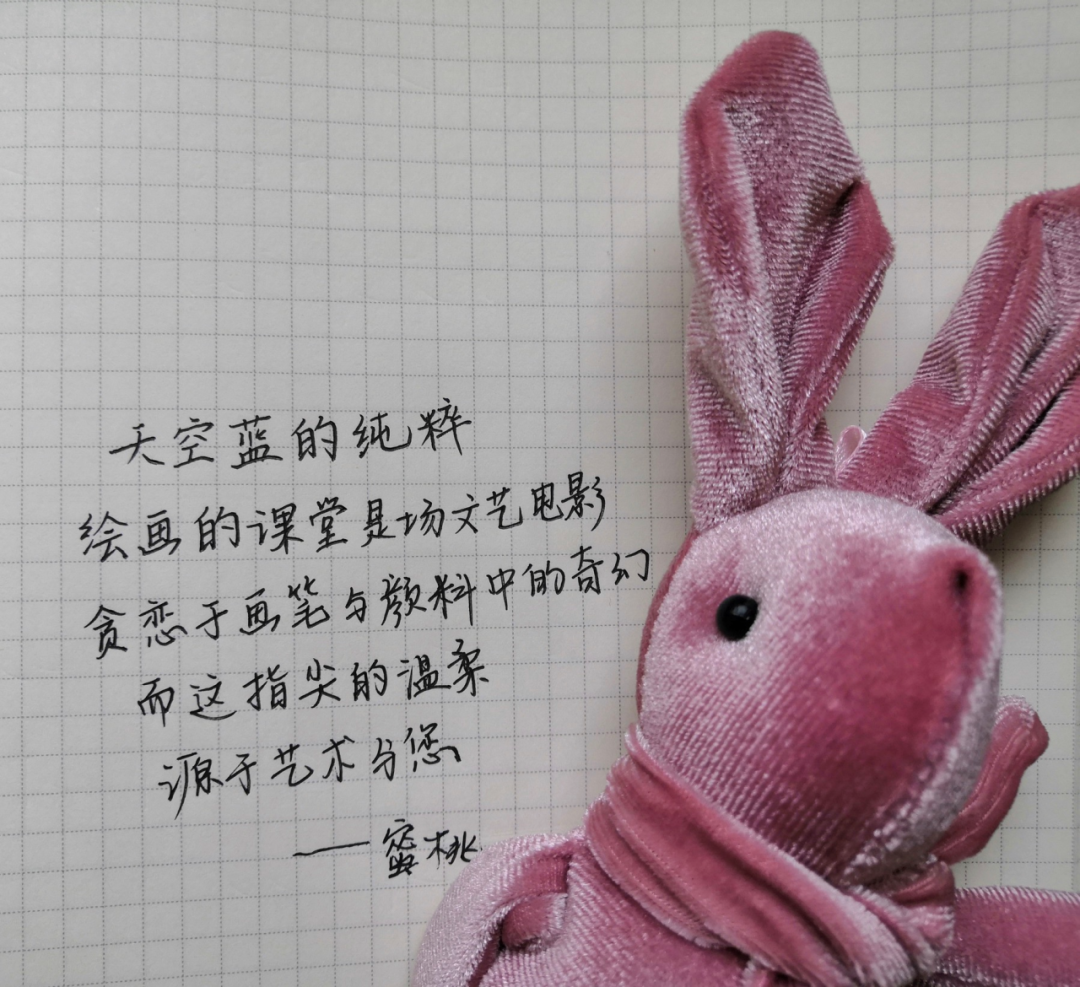 天空蓝的纯粹
绘画的课堂是场文艺电影
贪恋于画笔与颜料中的奇幻
而这指尖的温柔
源于艺术与您
——蜜桃